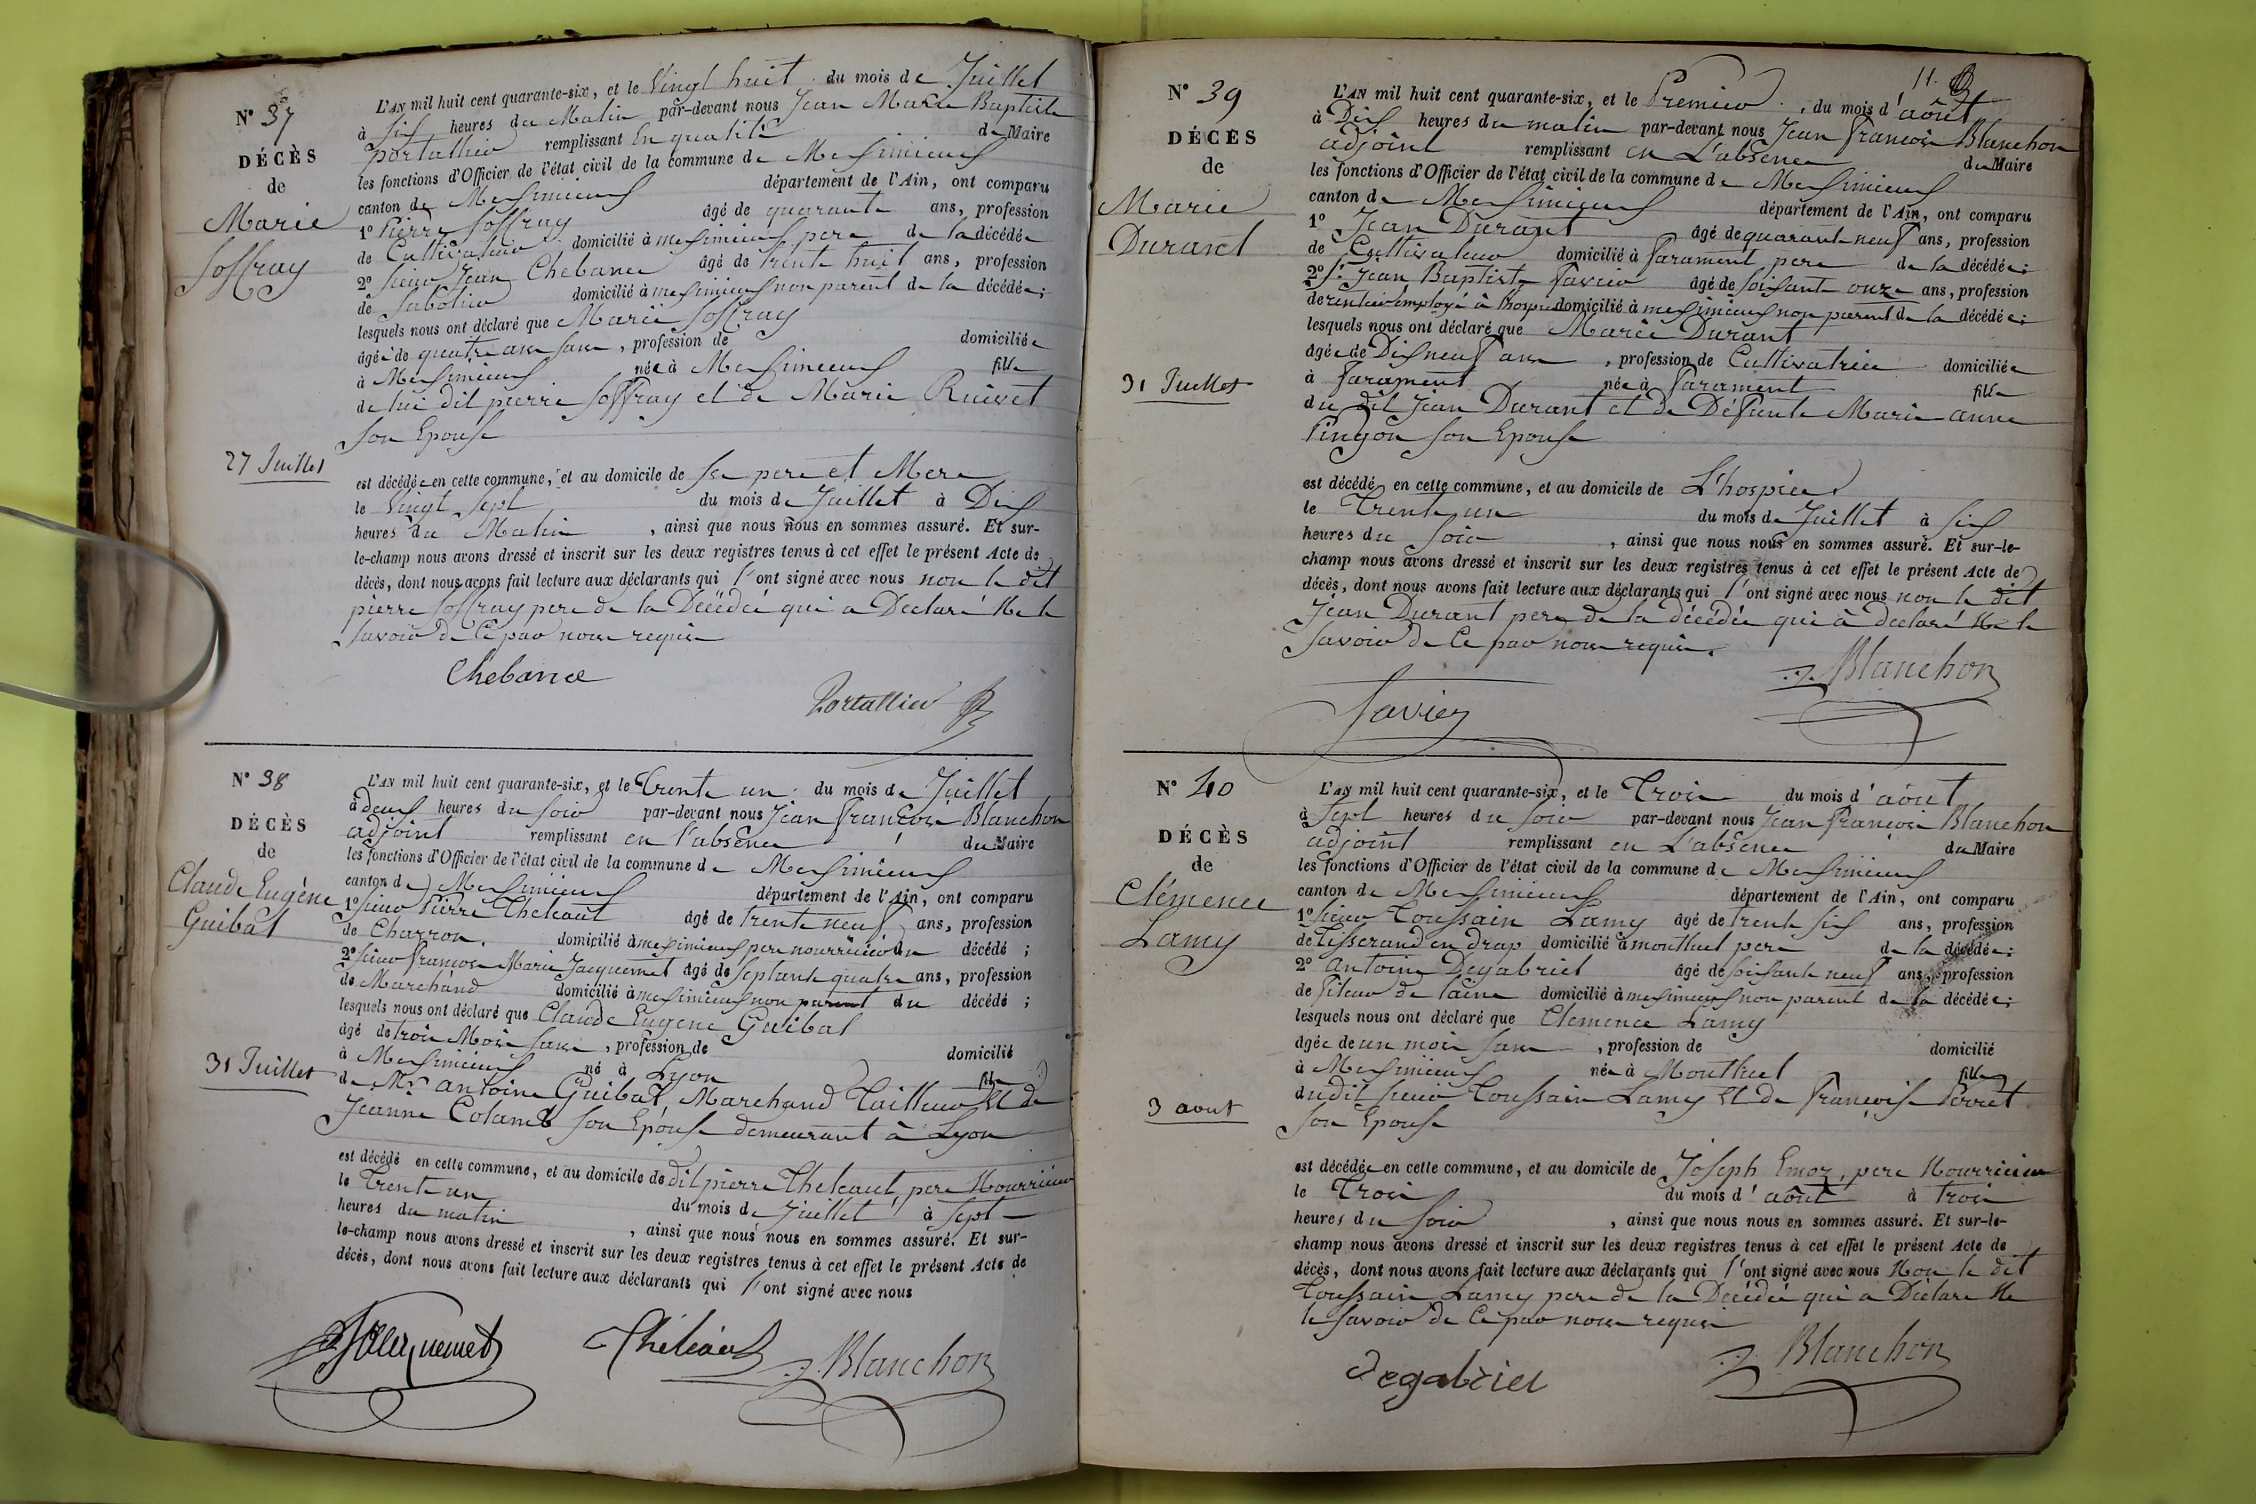 N° 37
DÉCÈS
de
Marie
Joffray
27 Juillet
L'AN mil huit cent quarante-six, et le Vingt huit du mois de Juillet
à Six heures du Matin par-devant nous Jean Marie Baptiste
Portallier remplissant En qualité de Maire
les fonctions d'Officier de l'état civil de la commune de Meximieux
canton de Meximieux département de l'Ain, ont comparu
1° Pierre Joffray âgé de quarante ans, profession
de Cultivateur domicilié à meximieux pere de la décédée
2° Sieur Jean Chebance âgé de trente huit ans, profession
de Sabotier domicilié à meximieux non parent de la décédée;
lesquels nous ont déclaré que Marie Joffray
âgée de quatre ans , profession de domiciliée
à Meximieux née à Meximieux fille
de lui dit pierre Joffray et de Marie Ruivet
son Epouse
est décédée en cette commune, et au domicile de Se pere et Mere
le Vingt Sept du mois de Juillet à Dix
heures du Matin , ainsi que nous nous en sommes assuré. Et sur-
le-champ nous avons dressé et inscrit sur les deux registres tenus à cet effet le présent Acte de
décès, dont nous avons fait lecture aux déclarants qui l'ont signé avec nous non le dit
pierre Joffray pere de la Décédée qui a Declaré Ne le
savoir de Ce par nous requis
Chebance
Portallier
N° 38
DÉCÈS
de
Claude Eugène
Guibal
31 Juillet
L'AN mil huit cent quarante-six, et le Trente un du mois de Juillet
à deux heures du soir par-devant nous Jean François Blanchon
adjoint remplissant en l'absence du Maire
les fonctions d'Officier de l'état civil de la commune de Meximieux
canton de Meximieux département de l'Ain, ont comparu
1° Sieur Pierre Theleaut âgé de trente neuf ans, profession
de Charron. domicilié à meximieux pere nourricier du décédé ;
2° Sieur françois Marie Jacquemet âgé de Septante quatre ans, profession
de Marchand domicilié à meximieux non parent du décédé ;
lesquels nous ont déclaré que Claude Eugene Guibal
âgé de trois Mois , profession de domicilié
à Meximieux né à Lyon fils
de Mr antoine Guibal Marchand Tailleur Et de
Jeanne son Epouse demeurant à Lyon
est décédé en cette commune, et au domicile de dit pierre Theleaut, pere Nourricier
le Trente un du mois de Juillet à Sept
heures du matin , ainsi que nous nous en sommes assuré. Et sur-
le-champ nous avons dressé et inscrit sur les deux registres tenus à cet effet le présent Acte de
décès, dont nous avons fait lecture aux déclarants qui l'ont signé avec nous
Jacquemet
J. Blanchon
11.
N° 39
DÉCÈS
de
Marie
Durand
31 Juillet
L'AN mil huit cent quarante-six, et le Premier , du mois d'août
à Dix heures du matin par-devant nous Jean françois Blanchon
adjoint remplissant en L'absence du Maire
les fonctions d'Officier de l'état civil de la commune de Meximieux
canton de Meximieux département de l'Ain, ont comparu
1° Jean Durant âgé de quarante neuf ans, profession
de Cultivateur domicilié à faramens pere de la décédée;
2° Sr Jean Baptiste favier âgé de Soixante onze ans, profession
de rentier employé à l'hospice domicilié à meximieux non parent de la décédée;
lesquels nous ont déclaré que Marie Durant
âgée de Dix neuf ans , profession de Cultivatrice domiciliée
à faramens née à faramens fille
du dit Jean Durant et de Défunte Marie anne
Pingon son Epouse
est décédée en cette commune, et au domicile de L'hospice
le Trente un du mois de Juillet à Six
heures du soir , ainsi que nous nous en sommes assuré. Et sur-le-
champ nous avons dressé et inscrit sur les deux registres tenus à cet effet le présent Acte de
décès, dont nous avons fait lecture aux déclarants qui l'ont signé avec nous non le dit
Jean Durant pere de la décédée qui à declaré Ne le
savoir de Ce par nous requis.
J. Blanchon
favier
N° 40
DÉCÈS
de
Clémence
Lamy
3 aout
L'AN mil huit cent quarante-six, et le Trois du mois d'août
à Sept heures du soir par-devant nous Jean françois Blanchon
adjoint remplissant en L'absence du Maire
les fonctions d'Officier de l'état civil de la commune de Meximieux
canton de Meximieux département de l'Ain, ont comparu
1° Sieur Toussain Lamy âgé de trente six ans, profession
de Tisserand en drap domicilié à montluel pere de la décédée;
2° antoine Degabriel âgé de soixante neuf ans, profession
de fileur de laine domicilié à meximieux non parent de la décédée;
lesquels nous ont déclaré que Clemence Lamy
âgée de un mois , profession de domicilié
à Meximieux née à Montluel fille
du dit sieur Toussain Lamy Et de françoise Perret
son Epouse
est décédée en cette commune, et au domicile de Joseph Emoz, pere Nourricier
le Trois du mois d'août à trois
heures du soir , ainsi que nous nous en sommes assuré. Et sur-le-
champ nous avons dressé et inscrit sur les deux registres tenus à cet effet le présent Acte de
décès, dont nous avons fait lecture aux déclarants qui l'ont signé avec nous Non le dit
Toussain Lamy pere de la Décédée qui a Déclare Ne
le savoir de Ce par nous requis
J. Blanchon
Degabriel